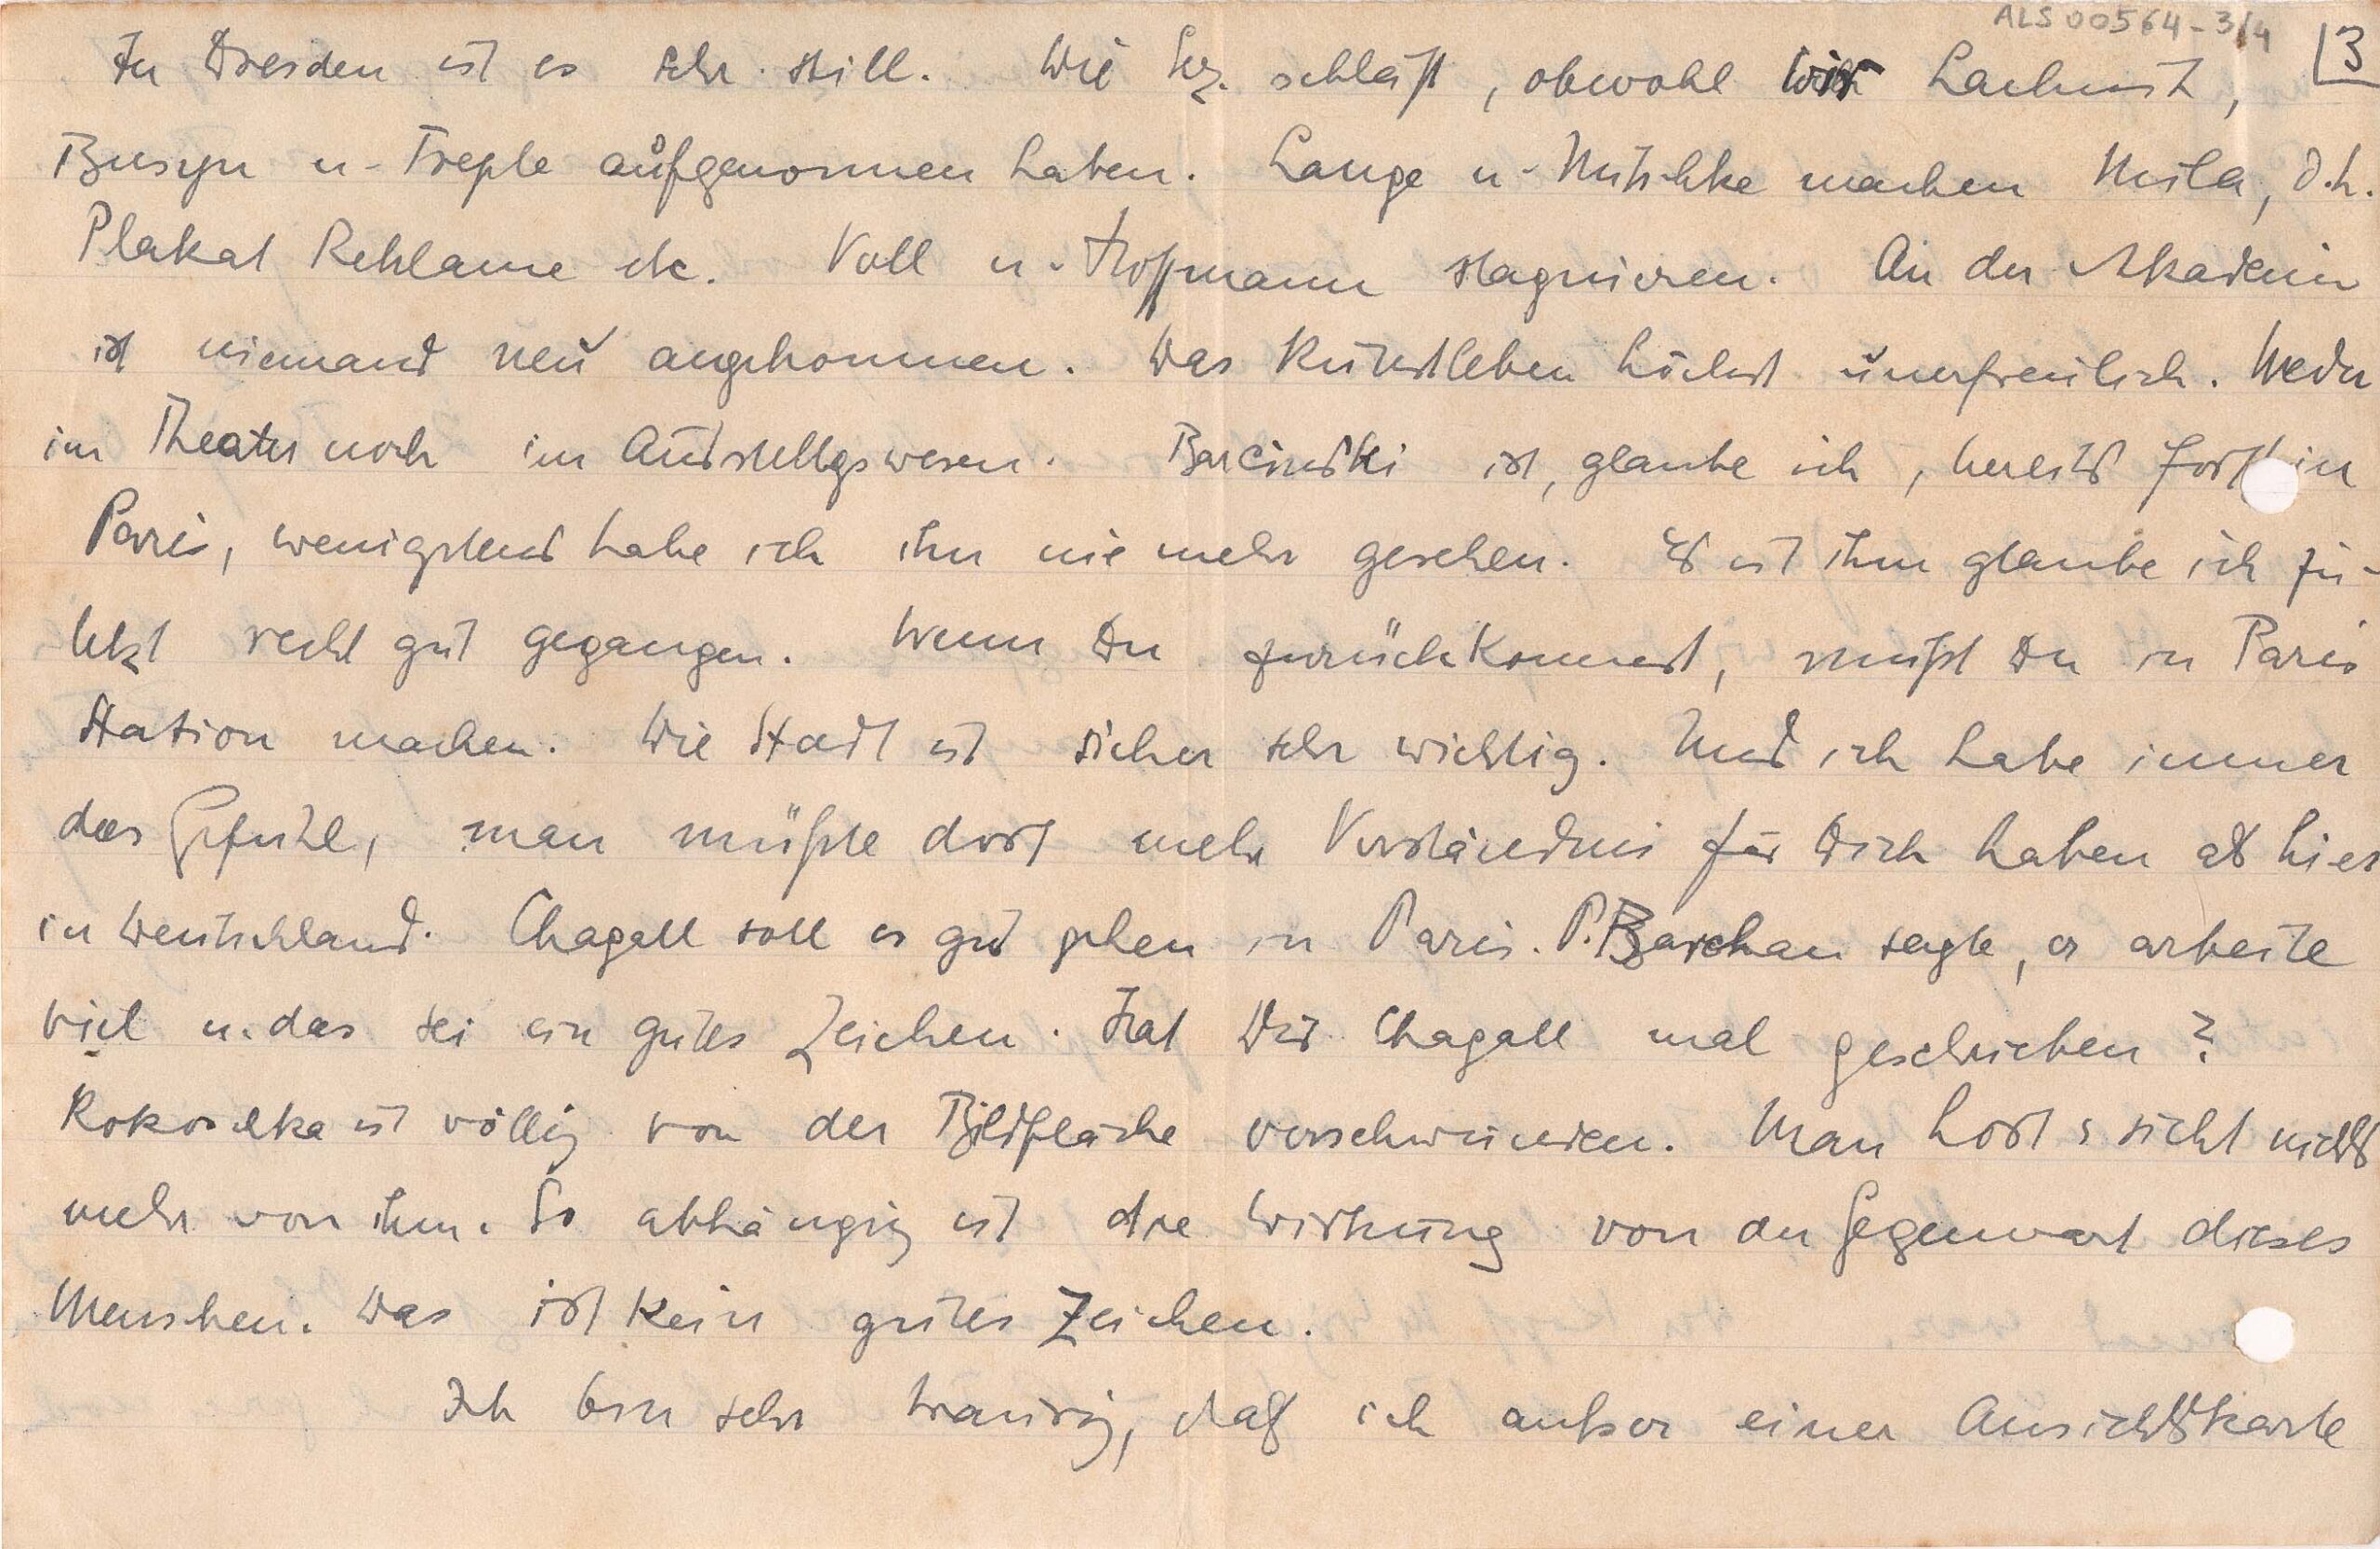 ALS 00564-3/4
3
In Dresden ist es sehr still. Die Sez. schläft, obwohl wir Lachnit,
Busyn u. Treple aufgenommen haben. Lange u. Mitschke machen Mila, d.h.
Plakat Reklame etc. Voll u. Hoffmann stagnieren. An der Akademie
ist niemand neu angekommen. Das Kunstleben höchst unerfreulich. Weder
im Theater noch im Ausstellgswesen. Barcinski ist, glaube ich, bereits fort in
Paris, wenigstens habe ich ihn nie mehr gesehen. Es ist ihm glaube ich zu-
letzt recht gut gegangen. Wenn Du zurückkommst, mußt Du in Paris
Station machen. Die Stadt ist sicher sehr wichtig. Und ich habe immer
das Gefühl, man müßte dort mehr Verständnis für Dich haben als hier
in Deutschland. Chagall soll es gut gehen in Paris. P. Barchan sagte, er arbeite
viel u. das sei ein gutes Zeichen. Hat Dir Chagall mal geschrieben?
Kokoschka ist völlig von der Bildfläche verschwunden. Man hört & sieht nichts
mehr von ihm. So abhängig ist die Wirkung von der Gegenwart dieses
Menschen. Das ist kein gutes Zeichen.
Ich bin sehr traurig, daß ich außer einer Ansichtskarte